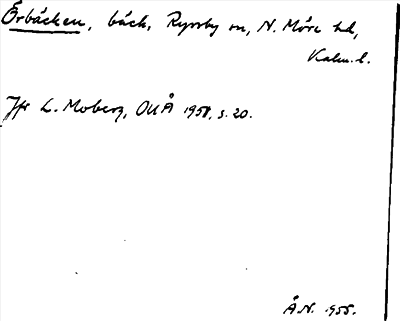 Örbäcken, bäck, Ryssby sn, N. Möre hd,
Kalm. l.
Jfr L. Moberg, OUÅ 1950, s. 20.
Å.N. 1955.